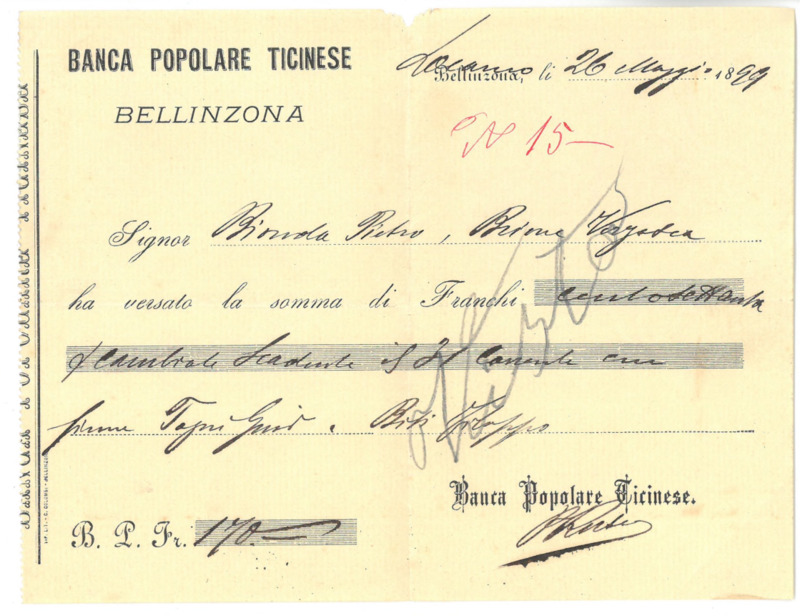 BANCA POPOLARE TICINESE
BELLINZONA
Locarno
Bellinzona, li 26 Maggio 1899
N 15
Signor Bionda Pietro, Brione Verzasca
ha versato la somma di Franchi centosettanta
cambiale scadente il 31 corrente con
firme Togni e Filippo
Banca Popolare Ticinese.
B. P. Fr. 170.—